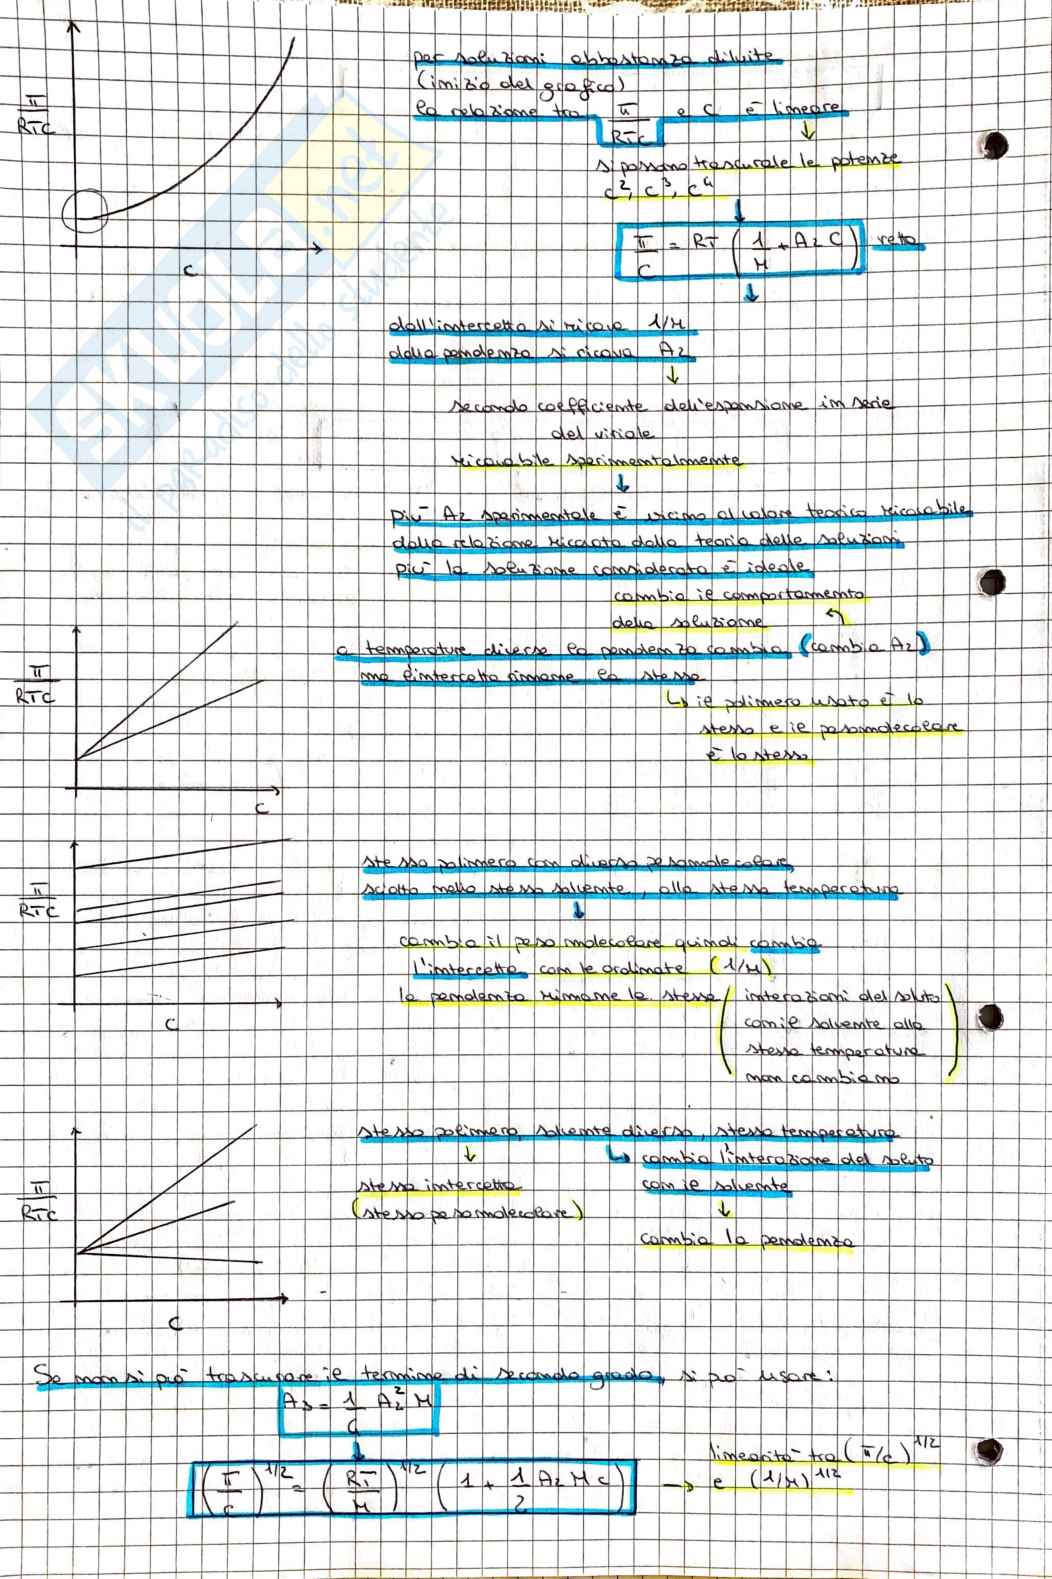 π/RTC
C
per soluzioni abbastanza diluite
(inizio del grafico)
la relazione tra π/RTC e C è lineare
si possono trascurare le potenze
c², c³, c⁴
π/C = RT (1/M + A₂ C) retta
dall'intercetta si ricava 1/M
dalla pendenza si ricava A₂
secondo coefficiente dell'espansione in serie
del viriale
ricavabile sperimentalmente
più A₂ sperimentale è vicino al valore teorico ricavabile
dalla relazione ricavata dalla teoria delle soluzioni
più la soluzione considerata è ideale
cambia il comportamento
della soluzione
a temperature diverse la pendenza cambia (cambia A₂)
ma l'intercetta rimane la stessa
il polimero usato è lo
stesso e il peso molecolare
è lo stesso
π/RTC
C
stesso polimero con diverso peso molecolare,
sciolto nello stesso solvente, alla stessa temperatura
cambia il peso molecolare quindi cambia
l'intercetta con le ordinate (1/M)
la pendenza rimane la stessa (interazioni del soluto
con il solvente alla
stessa temperatura
non cambiano)
π/RTC
C
stesso polimero, solvente diverso, stessa temperatura
cambia l'interazione del soluto
con il solvente
stessa intercetta
(stesso peso molecolare)
cambia la pendenza
π/RTC
C
Se non si può trascurare il termine di secondo grado, si può usare:
A₃ = 1/4 A₂² M
(π/c)^1/2 = (RT/M)^1/2 (1 + 1/2 A₂ M c)
linearità tra (π/c)^1/2
e (1/M)^1/2
SKUOLA.net
il paradiso dello studente